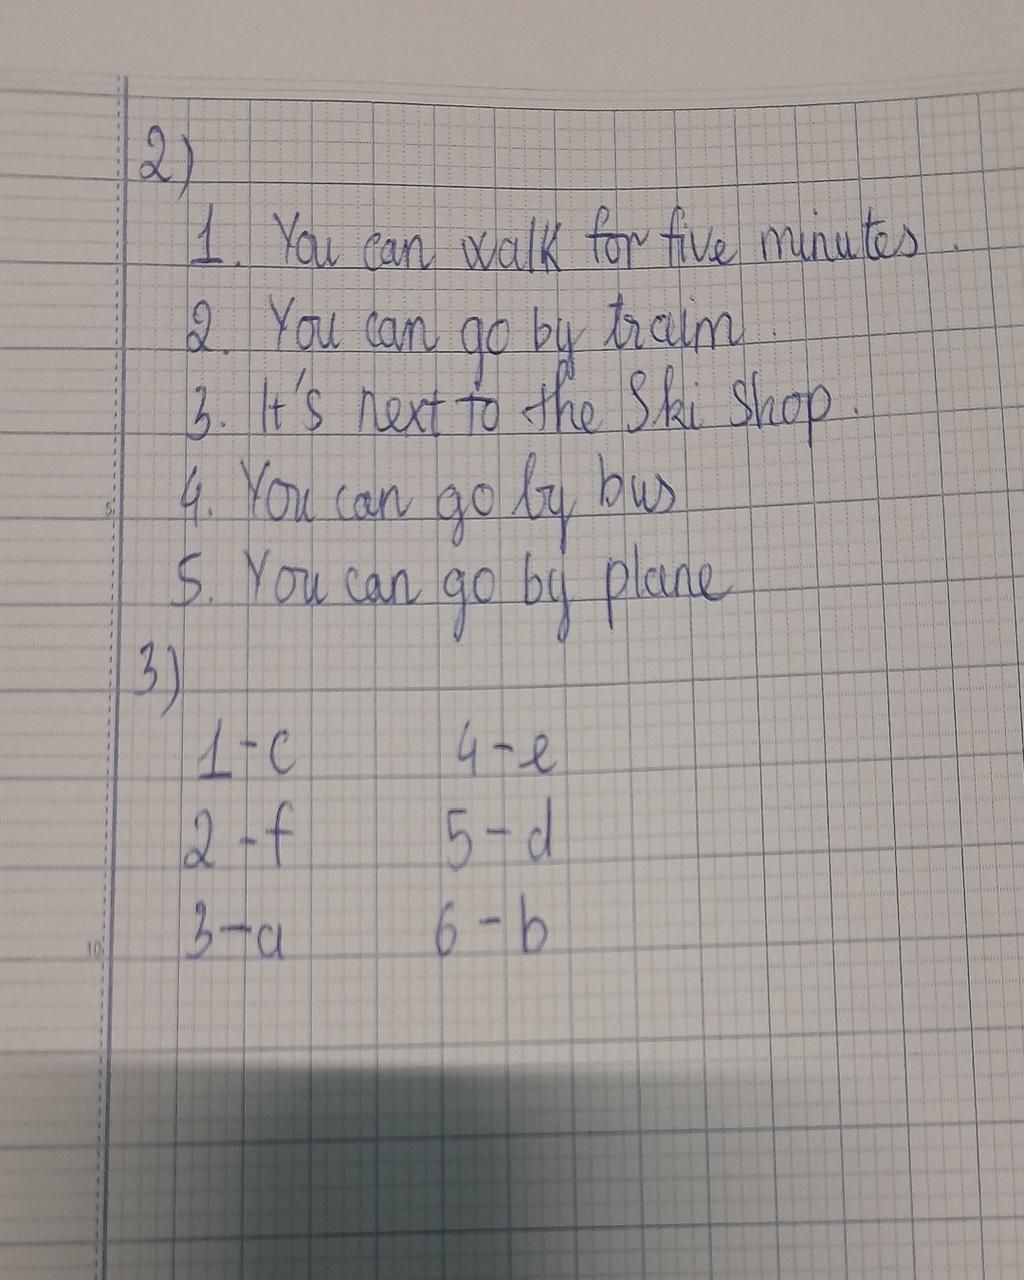 2)
1. You can walk for five minutes.
2. You can go by traim.
3. It's next to the Ski Shop.
4. You can go by bus
5. You can go by plane
3)
1-c 4-e
2-f 5-d
3-a 6-b